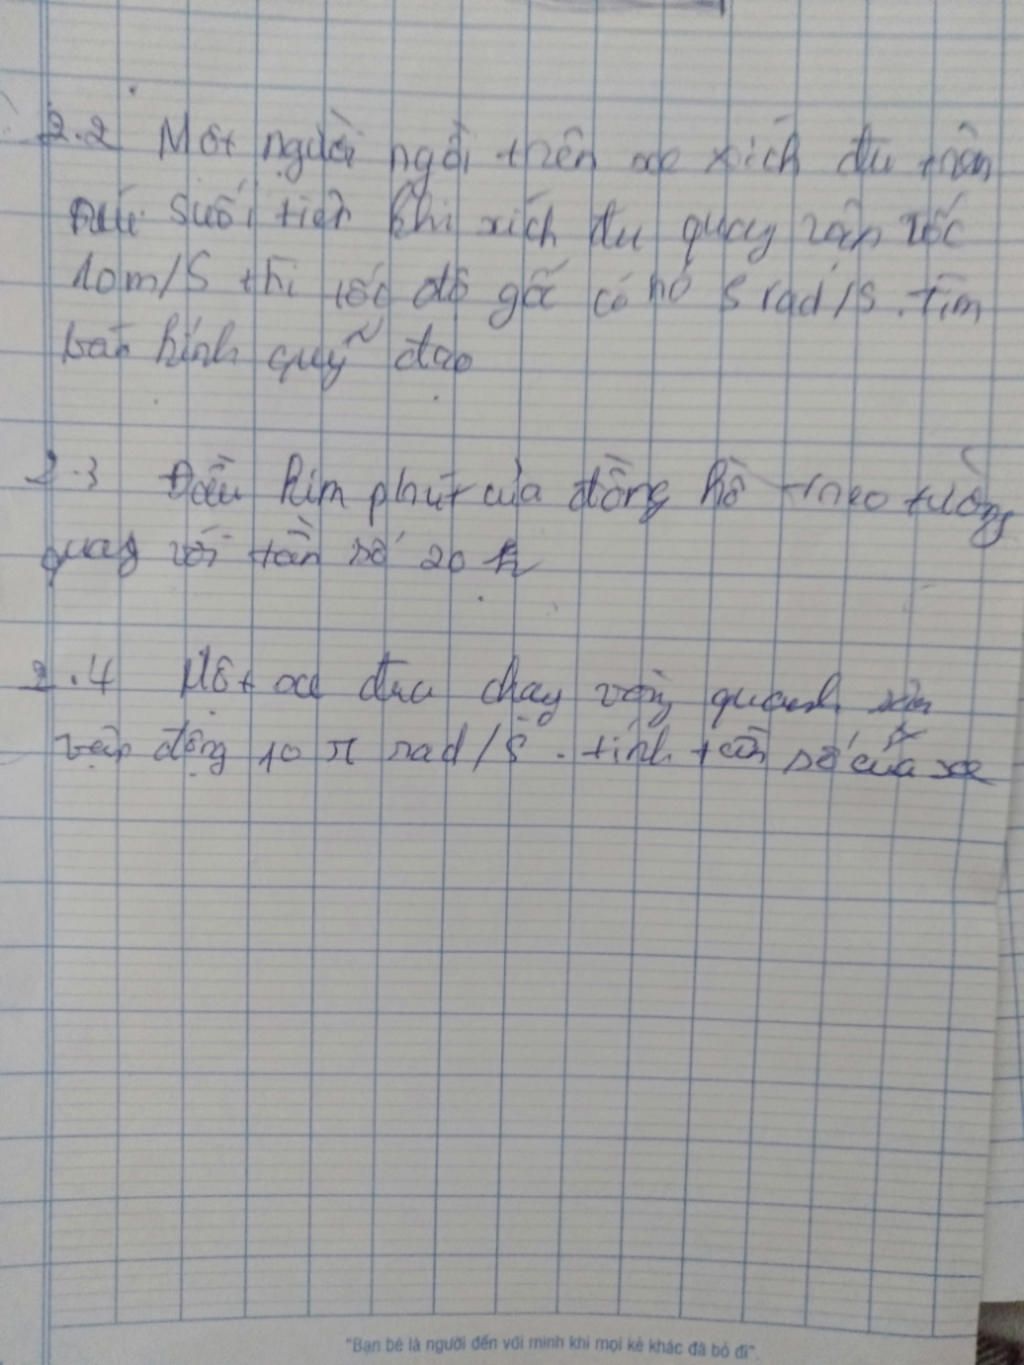 2.2 Một người ngồi trên xích đu trên
suối tiên khi xích đu quay vận tốc
10m/s thì tốc độ góc có nó 5 rad/s. tìm
bán kính quỹ đạo
2.3 Đầu kim phút của đồng hồ treo tường
quay với tần số 20 h
2.4 Một xe đua chạy vòng quanh sân
vận động 10 π rad/s. tính tần số của xe
"Bạn bè là người đến với mình khi mọi kẻ khác đã bỏ đi".